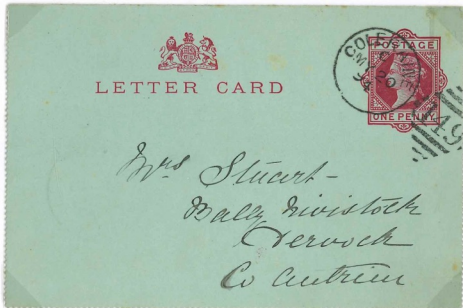 LETTER CARD
POSTAGE
ONE PENNY
COLERAINE
94
149
Mrs Stuart-
Bally Nivistock
Dervock
Co Antrim